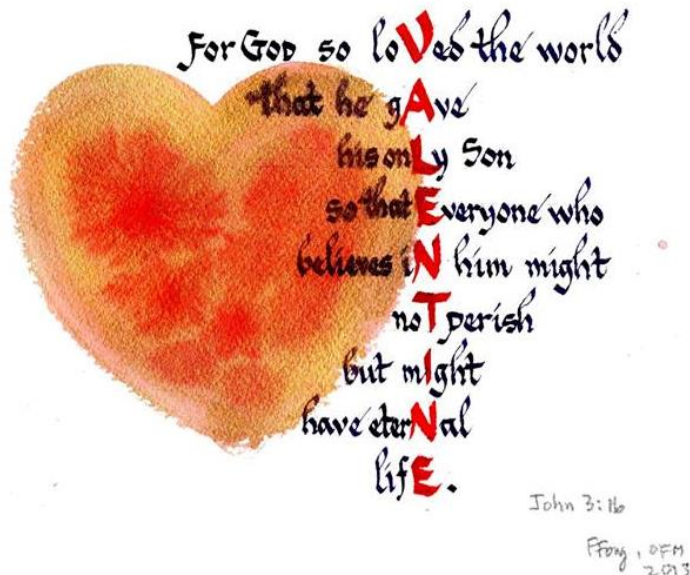 For God so loVed the world
that he gAve
his onLy Son
so that Everyone who
believes iN him might
noT perish
but mIght
have eterNal
lifE.
John 3:16
FFong, OFM
2013